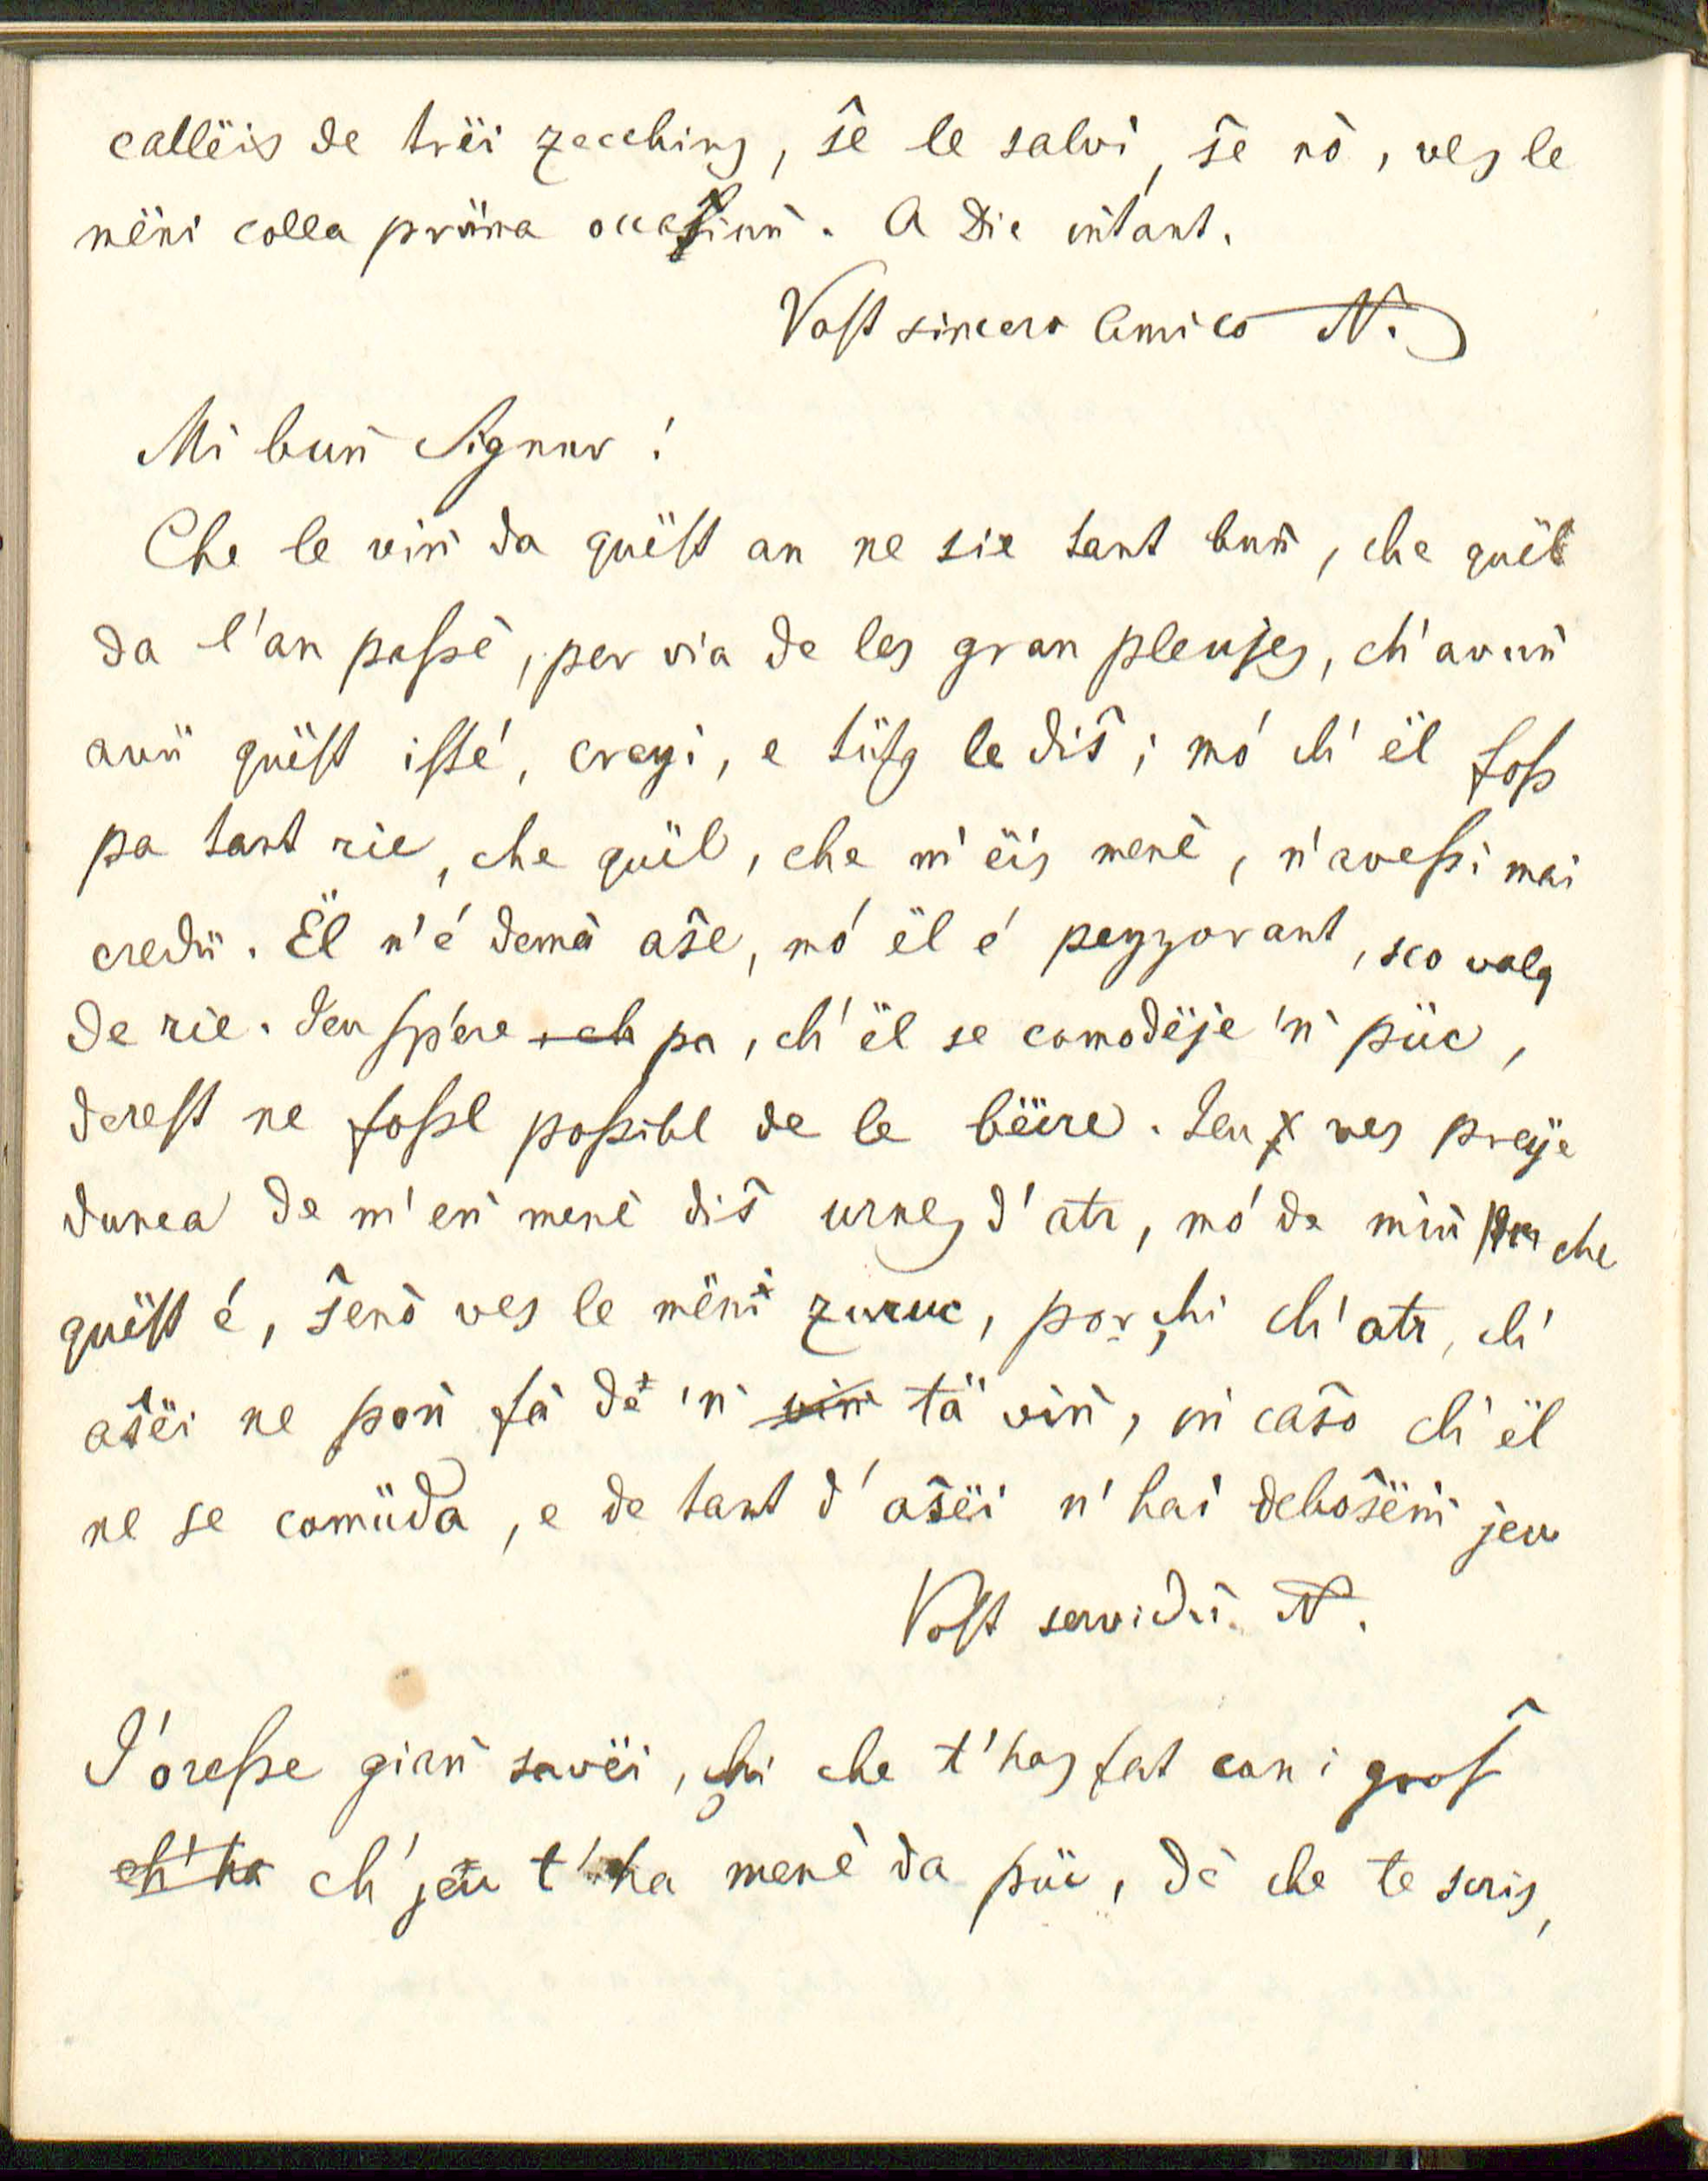 callëis de trëi zecchins, ŝe le salvi, ŝe nò, ves le
mëni colla prüma occaſiun̄. A Die in̄tant.
Voſt sincero Amico N.
Mi bun̄ Signur!
Che le vin̄ da quëſt an ne sie tant bun̄, che quël
da l'an paſsè, per via de les gran pleujes, ch' avun̄
avü quëſt iſté, creyi, e tüſg le diŝ; mó ch' ël foſs
pa tant rie, che quël, che m' ëis menè, n' aveſsi mai
credü. Ël n' é demà aŝe, mó ël é pezzorant, sco valg
de rie. Jeu ſpere pa, ch' ël se comodëje 'n püc,
dereſt ne foſsl poſsibl de le bëire. Jeu ves preye
dunca de m' en̄ menè diŝ urnes d' atr, mó de miù che
quëſt é, ŝenò ves le mëni zuruc, por chi ch' atr, ch'
aŝëi ne pon̄ fà de 'n tä vin̄, in̄ caŝo ch' ël
ne se comüda, e de tant d' aŝëi n' hai deboŝën̄ jeu
Voſt servidù. N.
J' óreſse gian̄ savëi, chi che t' has fat con i groŝ
ch' jeu t' ha menè da püc, dè che te scris,